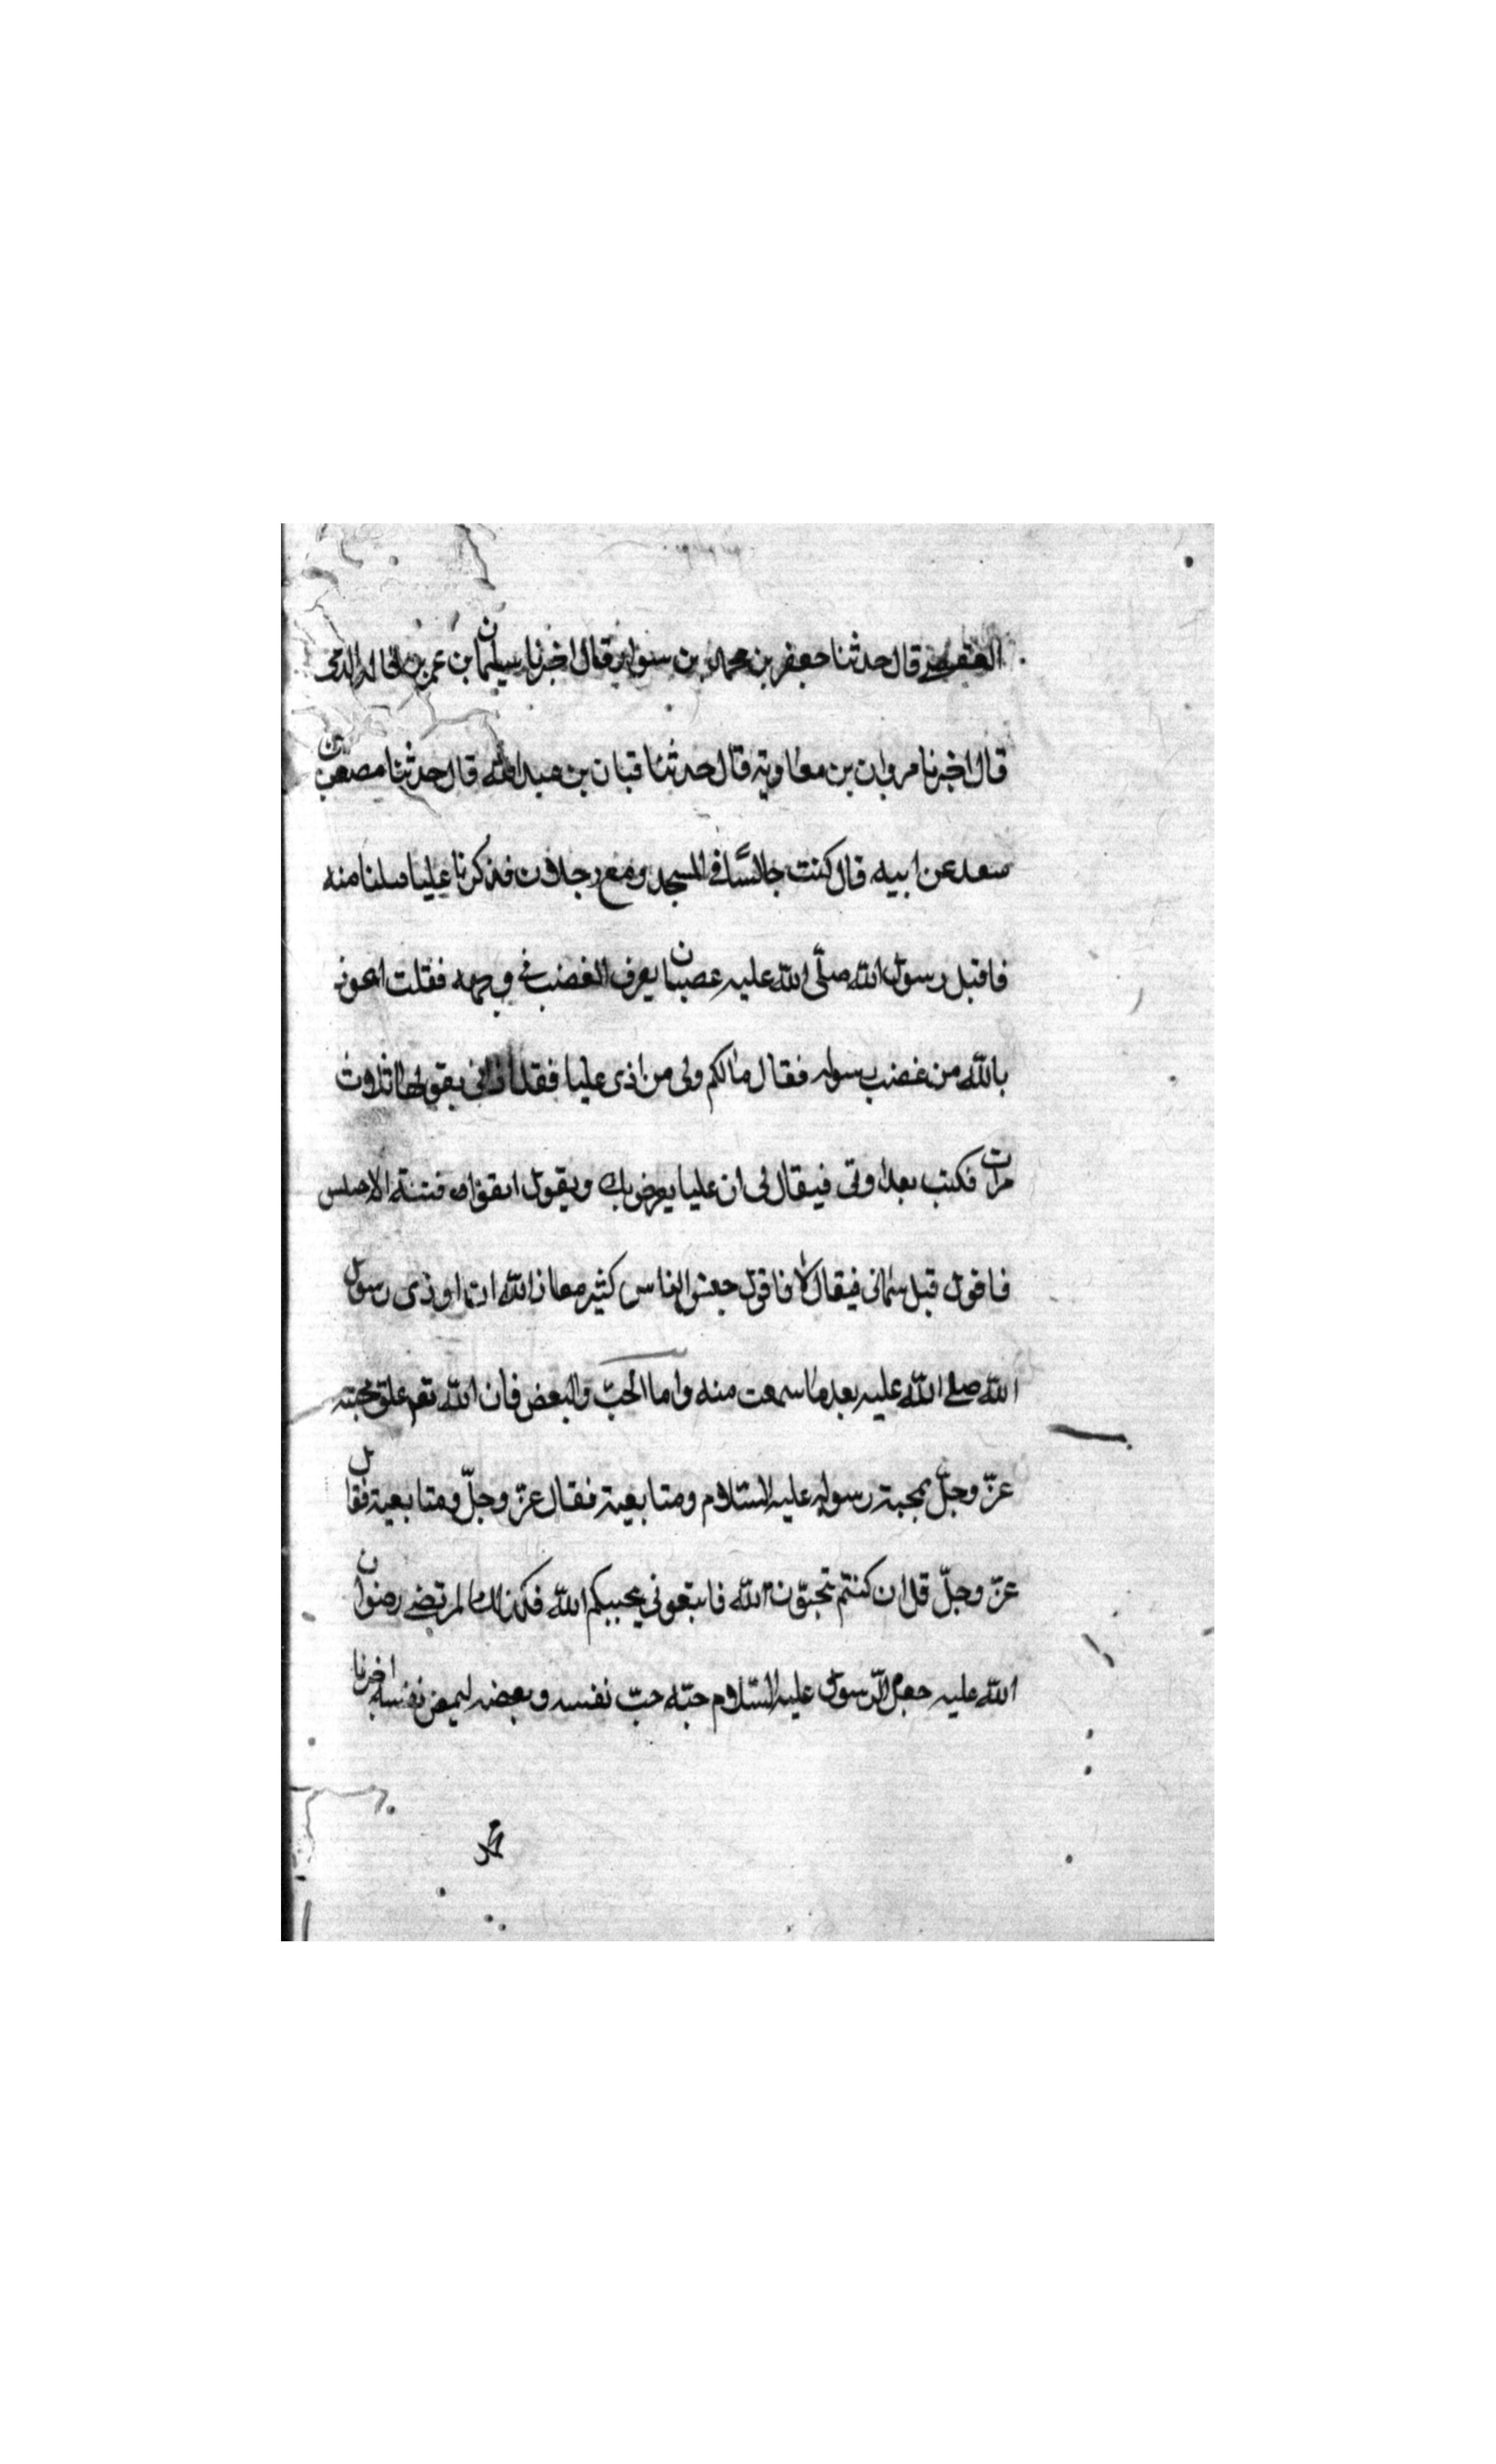 قال حدثنا جعفر بن محمد بن سوار قال اخبرنا سليمان بن عمر بن
قال اخبرنا مروان بن معاوية قال حدثنا قبان بن عبد الله قال حدثنا مصعب بن
سعد عن ابيه قال كنت جالسًا في المسجد ومع رجلان فذكرنا عليا منه
فاقبل رسول الله صلّى الله عليه غضبان يعرف الغضب في وجهه فقلت
بالله من غضب رسوله فقال مالكم ولى من اذى عليا فقد اذانى يقولها ثلاث
مرات فكنت بعد اوتى فيقال لى ان عليا يعرض بك ويقول اتقوا فتنة
فاقول قيل سمانى فيقال لا فاقول الناس كثير معاذ الله ان اوذى رسول
الله صلى الله عليه بعد ما سمعت منه واما الحبّ والبغض فان الله علق محبته
عزّ وجلّ بمحبة رسوله عليه السّلام ومتابعية فقال عزّ وجلّ ومتابعية فقال
عزّ وجلّ قل ان كنتم تحبّون الله فاتبعونى يحببكم الله فكذلك المرتضى رضوان
الله عليه جعل الرّسول عليه السّلام حبّه حبّ نفسه وبغضه نفسه اخبرنا
محمد